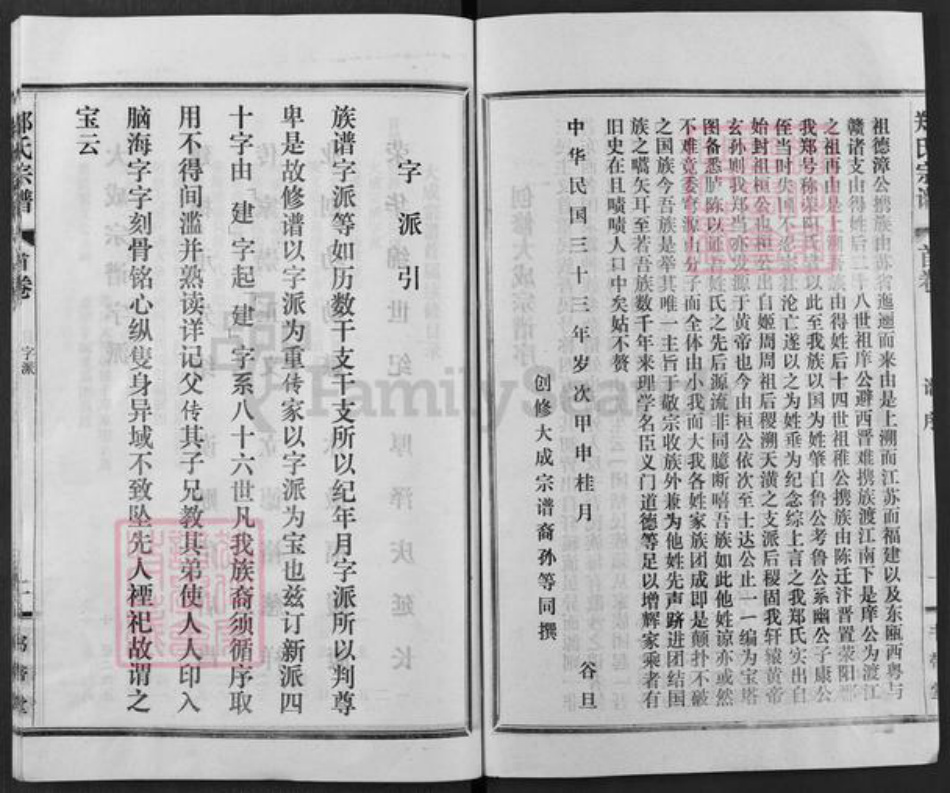 祖德漳公携族由苏省迤逦而来由是上溯而江苏而福建以及东瓯西粤与
赣诸支由得姓后二十八世祖庠公避西晋难携族渡江南下是庠公为渡江
之祖再由是上溯吾族由得姓后十四世祖稚公携族由陈迁汴晋置荥阳郡
我郑号称荥阳氏以此至我族以国为姓肇自鲁公考鲁公系幽公子康公
侄当时失国不忍宗社沦亡遂以之为姓垂为纪念综上言之我郑氏实出自
始封祖桓公也桓公出自姬周周祖后稷溯天潢之支派后稷固我轩辕黄帝
玄孙则我郑当亦发源于黄帝也今由桓公依次至士达公止一一编为宝塔
图备悉胪陈以证吾姓氏之先后源流非同臆断嘻吾族如此他姓谅亦或然
不难竟委穷源由分子而全体由小我而大我各姓家族团成即是颠扑不破
之国族今吾族是举其唯一主旨于敬宗收族外兼为他姓先声跻进团结国
族之嚆矢耳至若吾族数千年来理学名臣义门道德等足以增辉家乘者有
旧史在且啧啧人口中矣姑不赘
中华民国三十三年岁次甲申桂月 谷旦
创修大成宗谱裔孙等同撰
郑氏宗谱 首卷
字派引
族谱字派等如历数干支干支所以纪年月字派所以判尊
卑是故修谱以字派为重传家以字派为宝也兹订新派四
十字由 建 字起 建 字系八十六世凡我族裔须循序取
用不得间滥并熟读详记父传其子兄教其弟使人人印入
脑海字字刻骨铭心纵隻身异域不致坠先人禋祀故谓之
宝云
郑氏宗谱 首卷 字派 二
FamilySearch